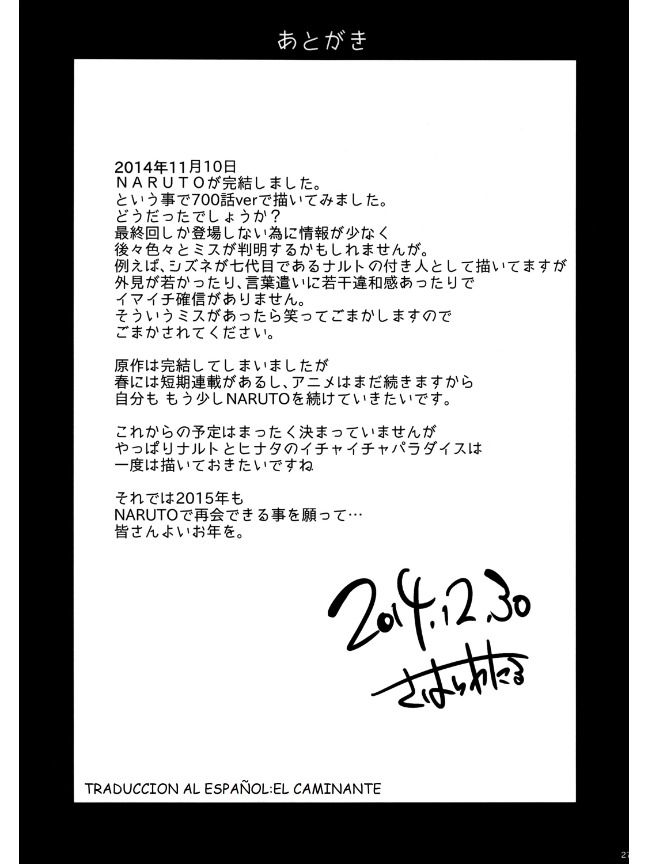 あとがき
2014年11月10日
ＮＡＲＵＴＯが完結しました。
という事で700話verで描いてみました。
どうだったでしょうか？
最終回しか登場しない為に情報が少なく
後々色々とミスが判明するかもしれませんが。
例えば、シズネが七代目であるナルトの付き人として描いてますが
外見が若かったり、言葉遣いに若干違和感あったりで
イマイチ確信がありません。
そういうミスがあったら笑ってごまかしますので
ごまかされてください。
原作は完結してしまいましたが
春には短期連載があるし、アニメはまだ続きますから
自分も もう少しNARUTOを続けていきたいです。
これからの予定はまったく決まっていませんが
やっぱりナルトとヒナタのイチャイチャパラダイスは
一度は描いておきたいですね
それでは2015年も
NARUTOで再会できる事を願って…
皆さんよいお年を。
2014.12.30
さはらわたる
TRADUCCION AL ESPAÑOL:EL CAMINANTE
27